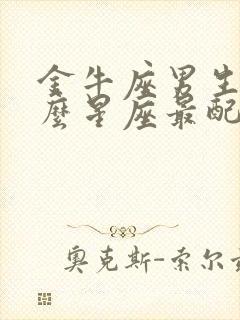 金牛座男生
麽星座最配
奥克斯-索尔